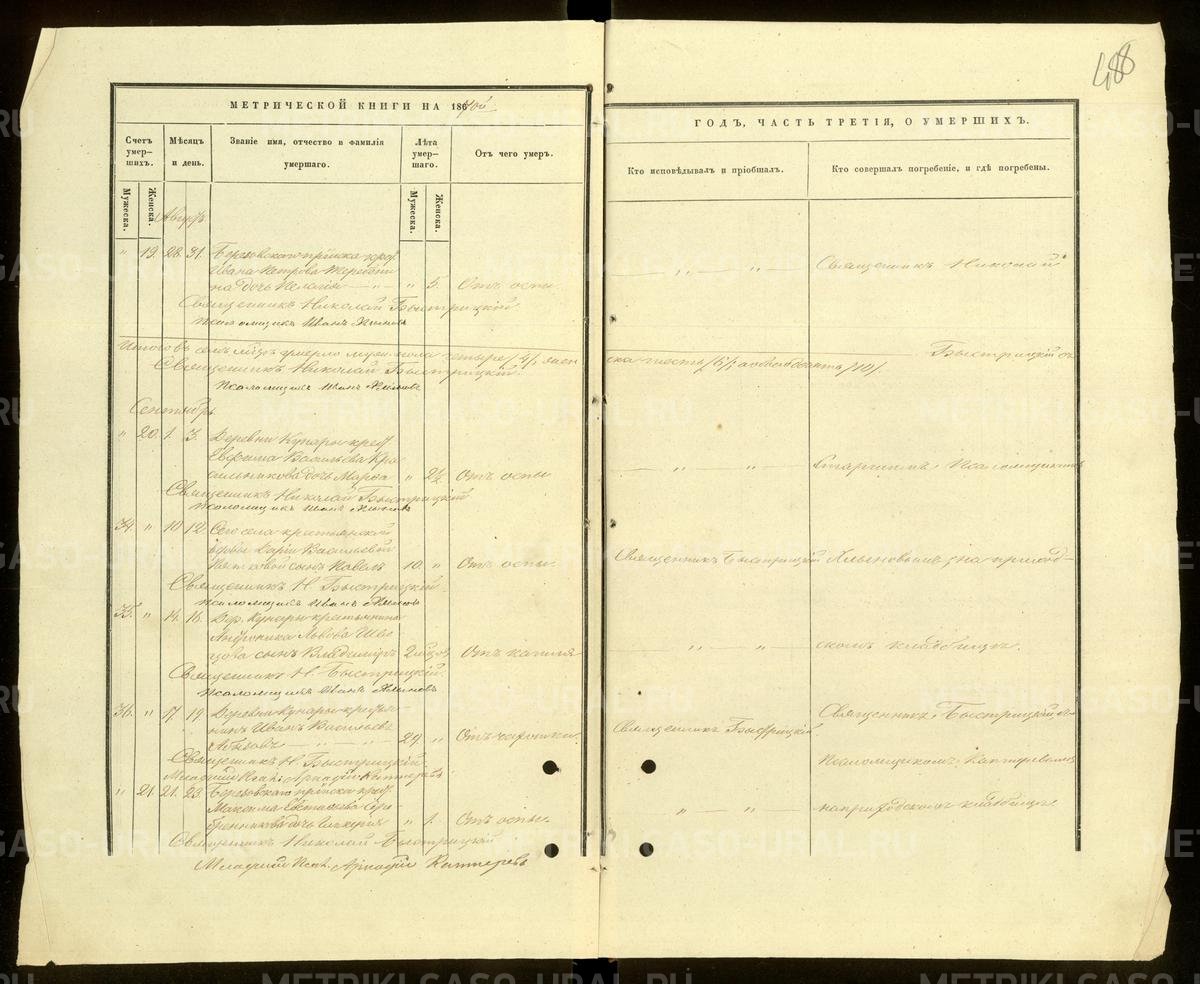 488
МЕТРИЧЕСКОЙ КНИГИ НА 1870й
ГОДЪ, ЧАСТЬ ТРЕТІЯ, О УМЕРШИХЪ.
Счетъ умер-
шихъ.
Мѣсяцъ
и день.
Званіе имя, отчество и фамилія
умершаго.
Лѣта
умер-
шаго.
Отъ чего умеръ.
Кто исповѣдывалъ и пріобщалъ.
Кто совершалъ погребеніе, и гдѣ погребены.
Мужеска.
Женска.
Мужеска.
Женска.
Августъ
" 19. 28. 31. Березовскаго пріиска крест.
Ивана Петрова
на дочь Пелагія " 5. Отъ оспы
" " Священникъ Николай
Священникъ Николай Быстрицкій
Псаломщикъ Иванъ Хлыновъ
Итого въ семъ мѣсяцѣ умерло муж. пола четыре /4/, женска шесть /6/, а обоего десять /10/.
Священникъ Николай Быстрицкій
Быстрицкій съ
Псаломщикъ Иванъ Хлыновъ
Сентябрь
" 20. 1. 3. Деревни Кунары крест.
Евфима Васильева Кра-
сильникова дочь Марѳа " 2½ Отъ оспы
" " Старшимъ Псаломщикомъ
Священникъ Николай Быстрицкій
Псаломщикъ Иванъ Хлыновъ
34. " 10 12. Сего села крестьянской
вдовы Даріи Васильевой
сынъ Павелъ 10. " Отъ оспы.
Священникъ Быстрицкій
Хлыновымъ на приход-
Священникъ Н. Быстрицкій
Псаломщикъ Иванъ Хлыновъ
35. " 14. 16. Дер. Кунары крестьянина
Андроника Львова Шве-
цова сынъ Владимиръ Отъ кашля
" " скомъ кладбищѣ.
Священникъ Н. Быстрицкій
Псаломщикъ Иванъ Хлыновъ
36. " 17. 19. Деревни Кунары крестья-
нинъ Иванъ Васильевъ
29. " Отъ чахотки.
Священникъ Быстрицкій
Священникъ Быстрицкій
Псаломщикомъ
Священникъ Н. Быстрицкій
Младшій Псал. Аркадій
" 21. 21. 23. Березовскаго пріиска крест.
Максима Евстафьева Сере-
бренникова дочь Гликерія " 1. Отъ оспы.
" " на приходскомъ кладбищѣ
Священникъ Николай Быстрицкій
Младшій Псал. Аркадій
METRIKI.GASO-URAL.RU